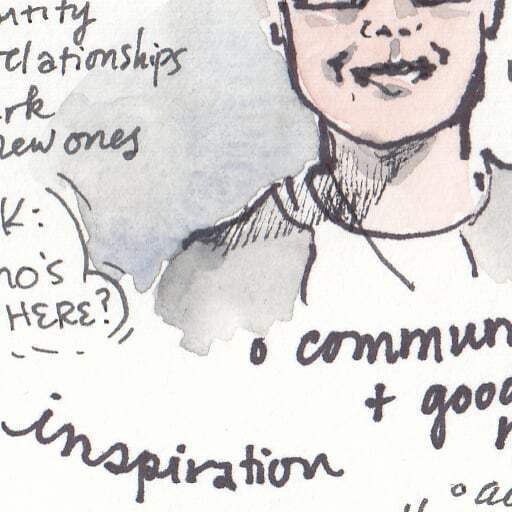 ntity
relationships
rk
new ones
K:
ho's
HERE?
o commun
+ good
inspiration